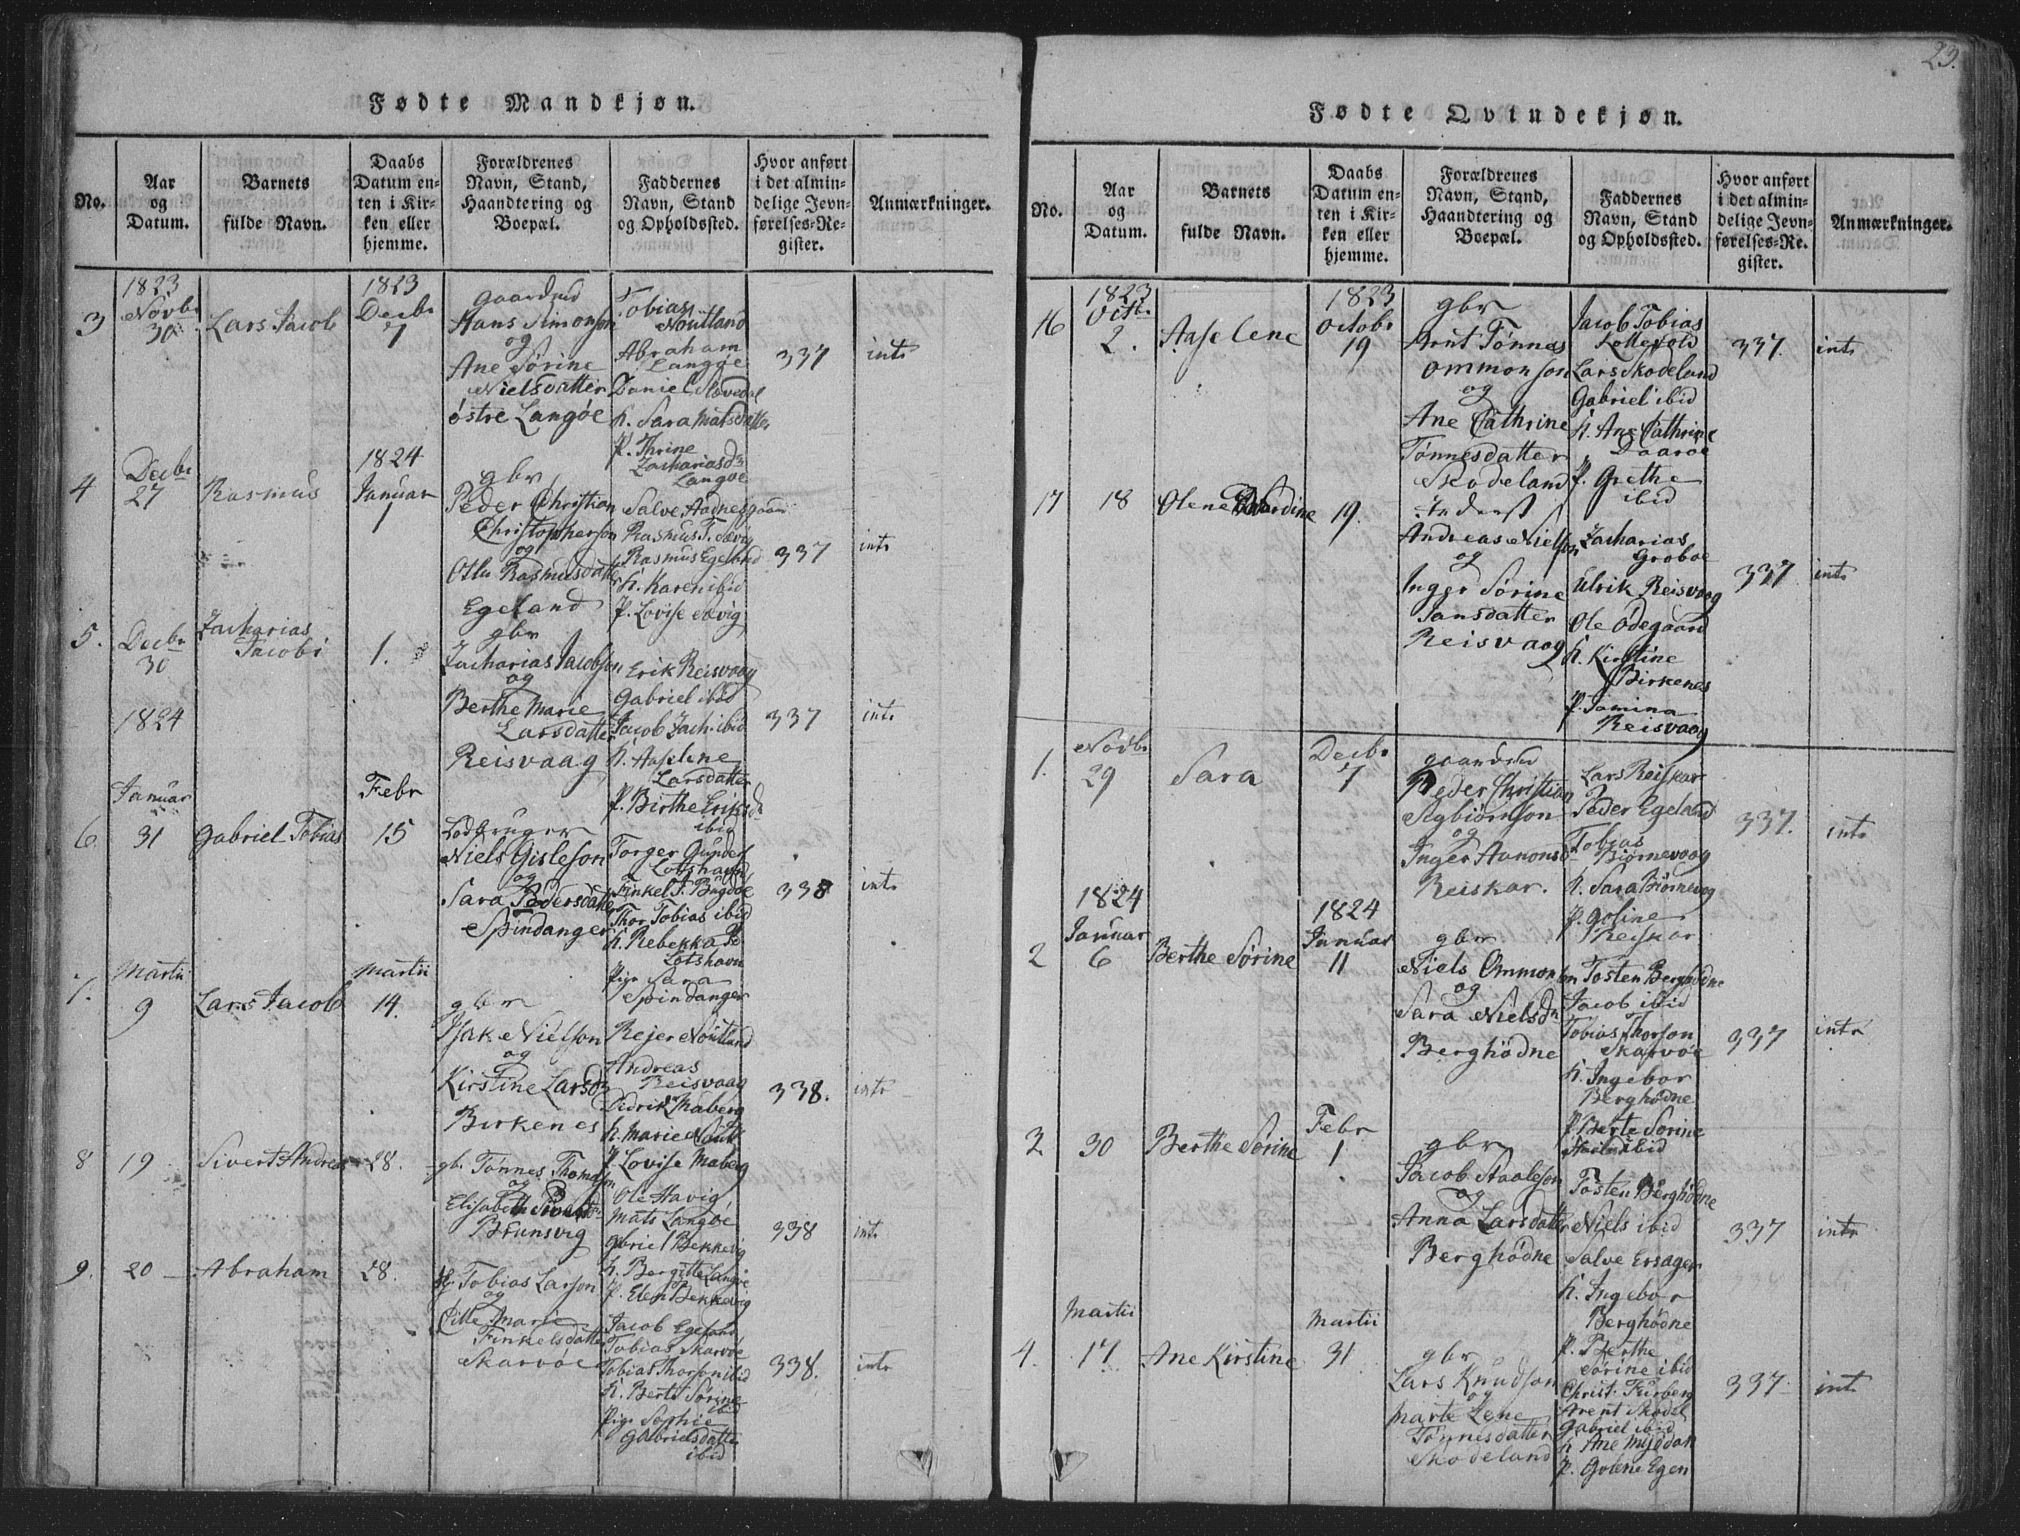 23.
Fødte Mandkjøn.
No.
Aar
og
Datum.
Barnets
fulde Navn.
Daabs
Datum en-
ten i Kir-
ken eller
hjemme.
Forældrenes
Navn, Stand,
Haandtering og
Boepæl.
Faddernes
Navn, Stand
og Opholdssted.
Hvor anført
i det almin-
delige Jevn-
førelses-Re-
gister.
Anmærkninger.
3
1823
Novbr
30
Lars Jacob
1823
Decbr
7
Hans Simonson
og
Ane Sørine
Nielsdatter
østre Langøe
Tobias
Noutland
Abraham
Langøe
K. Sara Matsdatter
P. Thrine
Zachariasd
Langøe
337
intr
4
Decbr
27
Rasmus
1824
Januar
1
gbr
Peder Christian
Christopherson
og
Rasmusdatter
Egeland
Salve Aadnesgaard
Rasmus Egeland
K. Karen ibid
P. Lovise
337
intr
5.
Decbr
30
Zacharias
Jacob
1.
gbr
Zacharias Jacobson
og
Berthe Marie
Larsdatter
Reisvaag
Erik Reisvaag
Gabriel ibid
Jacob Zach. ibid
K. Aaselene
Larsdatter
P. Birthe Eriksd
337
intr
1824
Januar
6
31
Gabriel Tobias
Febr
15
Niels Gisleson
og
Sara Pedersdatter
Spindanger
Torger
Thor Tobias ibid
K. Rebekka
Lotshavn
Pige Sara
Spindanger
338
intr
7.
Martii
9
Lars Jacob
Martii
14.
gbr
Isak Nielson
og
Kirstine Larsd
Birkenes
Rejer Noutland
Andreas
Reisvaag
Didrik Maberg
K. Marie
P. Lovise Maberg
338.
intr
8
19
Sivert Andreas
28.
gbr Tønnes Thomason
og
Elisabeth
Brunsvig
Ole Havig
Mats Langøe
Gabriel Bekkevig
K. Bergitte Langøe
P. Elen Bekkevig
338
intr
9.
20
Abraham
28.
Tobias Larson
og
Marie
Finkelsdatter
Skarvøe
Jacob Egeland
Tobias Skarvøe
Tobias Thorson ibid
K. Berte Sørine
ibid
Pige Sophie
Gabrielsdatter
ibid
338.
intr
Fødte Qvindekjøn.
No.
Aar
og
Datum.
Barnets
fulde Navn.
Daabs
Datum en-
ten i Kir-
ken eller
hjemme.
Forældrenes
Navn, Stand,
Haandtering og
Boepæl.
Faddernes
Navn, Stand
og Opholdssted.
Hvor anført
i det almin-
delige Jevn-
førelses-Re-
gister.
Anmærkninger.
16
1823
Octbr
2.
Aaselene
1823
Octobr
19
gbr
Arnt Tønnes
Ommonson
og
Ane Cathrine
Tønnesdatter
Skodeland
Jacob Tobias
Lars Skodeland
Gabriel ibid
K. Ane Cathrine
P. Grethe
ibid
337.
intr
17
18
Olene
19.
Inderst
Andreas Nielson
og
Inger Sørine
Jansdatter
Reisvaag
Zacharias
Groboe
Ulrik Reisvaag
Ole Ødegaard
K. Kirstine
Birkenes
P. Jamina
Reisvaag
337
intr
1.
Novbr
29
Sara
Decbr
7
Peder Christian
og
Inger Aanonsd
Reiskar.
Lars Reiskar
Peder Egeland
Tobias
Biørnevaag
K. Sara Biørnevaag
P. Goline
Reiskar
337.
intr
2
1824
Januar
6
Berthe Sørine
1824
Januar
11
gbr
Niels Ommonson
og
Sara Nielsd
Berghødne
Tosten Berghødne
Jacob ibid
Tobias Thorson
Skarvøe
K. Ingebor
Berghødne
P. Berte Sørine
337
intr
3
30
Berthe Sørine
Febr
1
gbr
Jacob Staaleson
og
Anna Larsdatter
Berghødne
Tosten Berghødne
Niels ibid
Salve Ersager
K. Ingebor
Berghødne
P. Berthe
Sørine ibid
337
intr
4.
Martii
17
Ane Kirstine
Martii
31
gbr
Lars Knudson
og
Marte Lene
Tønnesdatter
Skodeland
Christ. Furberg
Arent Skodel
Gabriel ibid
K Ane
P. Golene Egen
337
intr